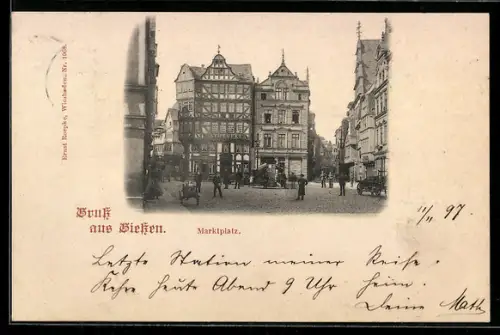 Ernst Roepke, Wiesbaden, Nr. 1008.
Gruß
aus Gießen.
Marktplatz.
11/11 97.
Letzte Station meiner Reise.
Kehre heute Abend 9 Uhr heim.
Deine Math